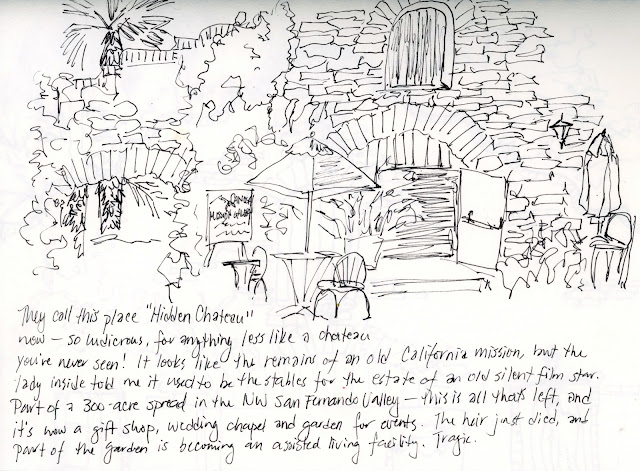 They call this place "Hidden Chateau"
now — so ludicrous, for anything less like a chateau
you've never seen! It looks like the remains of an old California mission, but the
lady inside told me it used to be the stables for the estate of an old silent film star.
Part of a 300-acre spread in the NW San Fernando Valley — this is all that's left, and
it's now a gift shop, wedding chapel and garden for events. The heir just died, and
part of the garden is becoming an assisted living facility. Tragic.